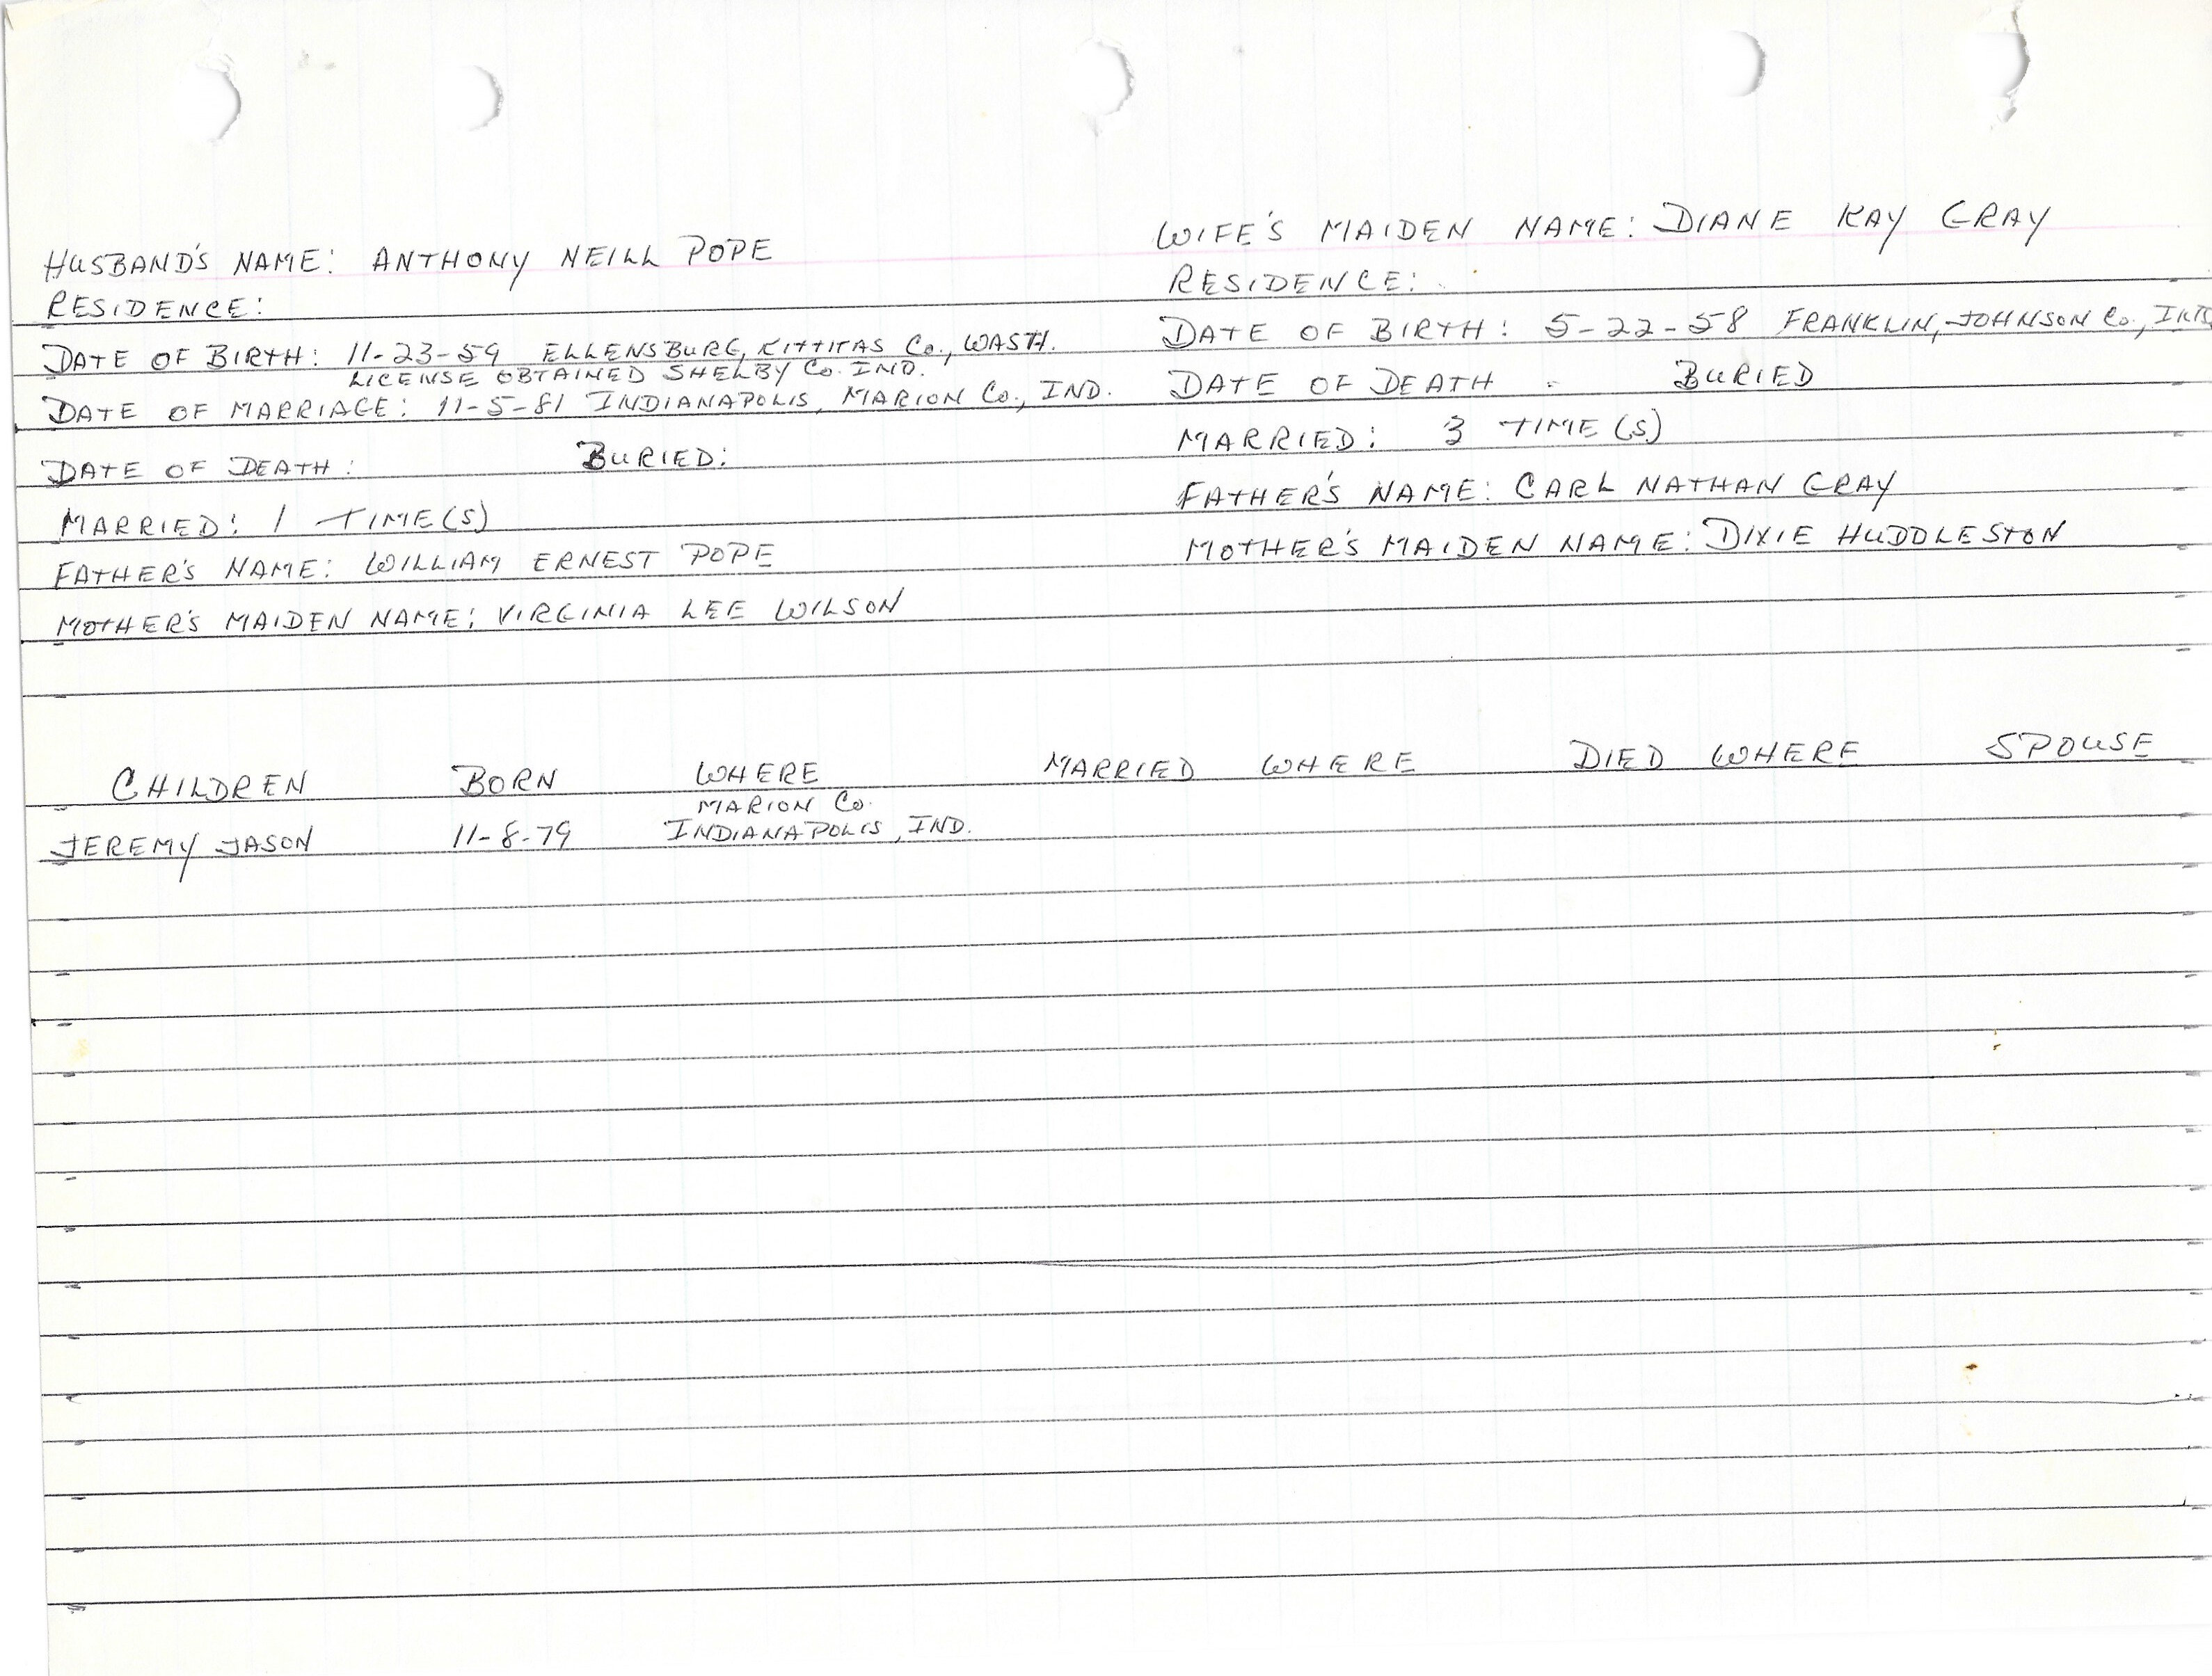 HUSBAND'S NAME: ANTHONY NEILL POPE
RESIDENCE:
DATE OF BIRTH: 11-23-59 ELLENSBURG, KITTITAS Co., WASH.
LICENSE OBTAINED SHELBY Co. IND.
DATE OF MARRIAGE: 11-5-81 INDIANAPOLIS, MARION Co., IND.
DATE OF DEATH: BURIED:
MARRIED: 1 TIME(S)
FATHER'S NAME: WILLIAM ERNEST POPE
MOTHER'S MAIDEN NAME: VIRGINIA LEE WILSON
WIFE'S MAIDEN NAME: DIANE KAY GRAY
RESIDENCE:
DATE OF BIRTH: 5-22-58 FRANKLIN, JOHNSON Co., IND
DATE OF DEATH BURIED
MARRIED: 3 TIME(S)
FATHER'S NAME: CARL NATHAN GRAY
MOTHER'S MAIDEN NAME: DIXIE HUDDLESTON
CHILDREN BORN WHERE MARRIED WHERE DIED WHERE SPOUSE
MARION Co.
JEREMY JASON 11-8-79 INDIANAPOLIS, IND.